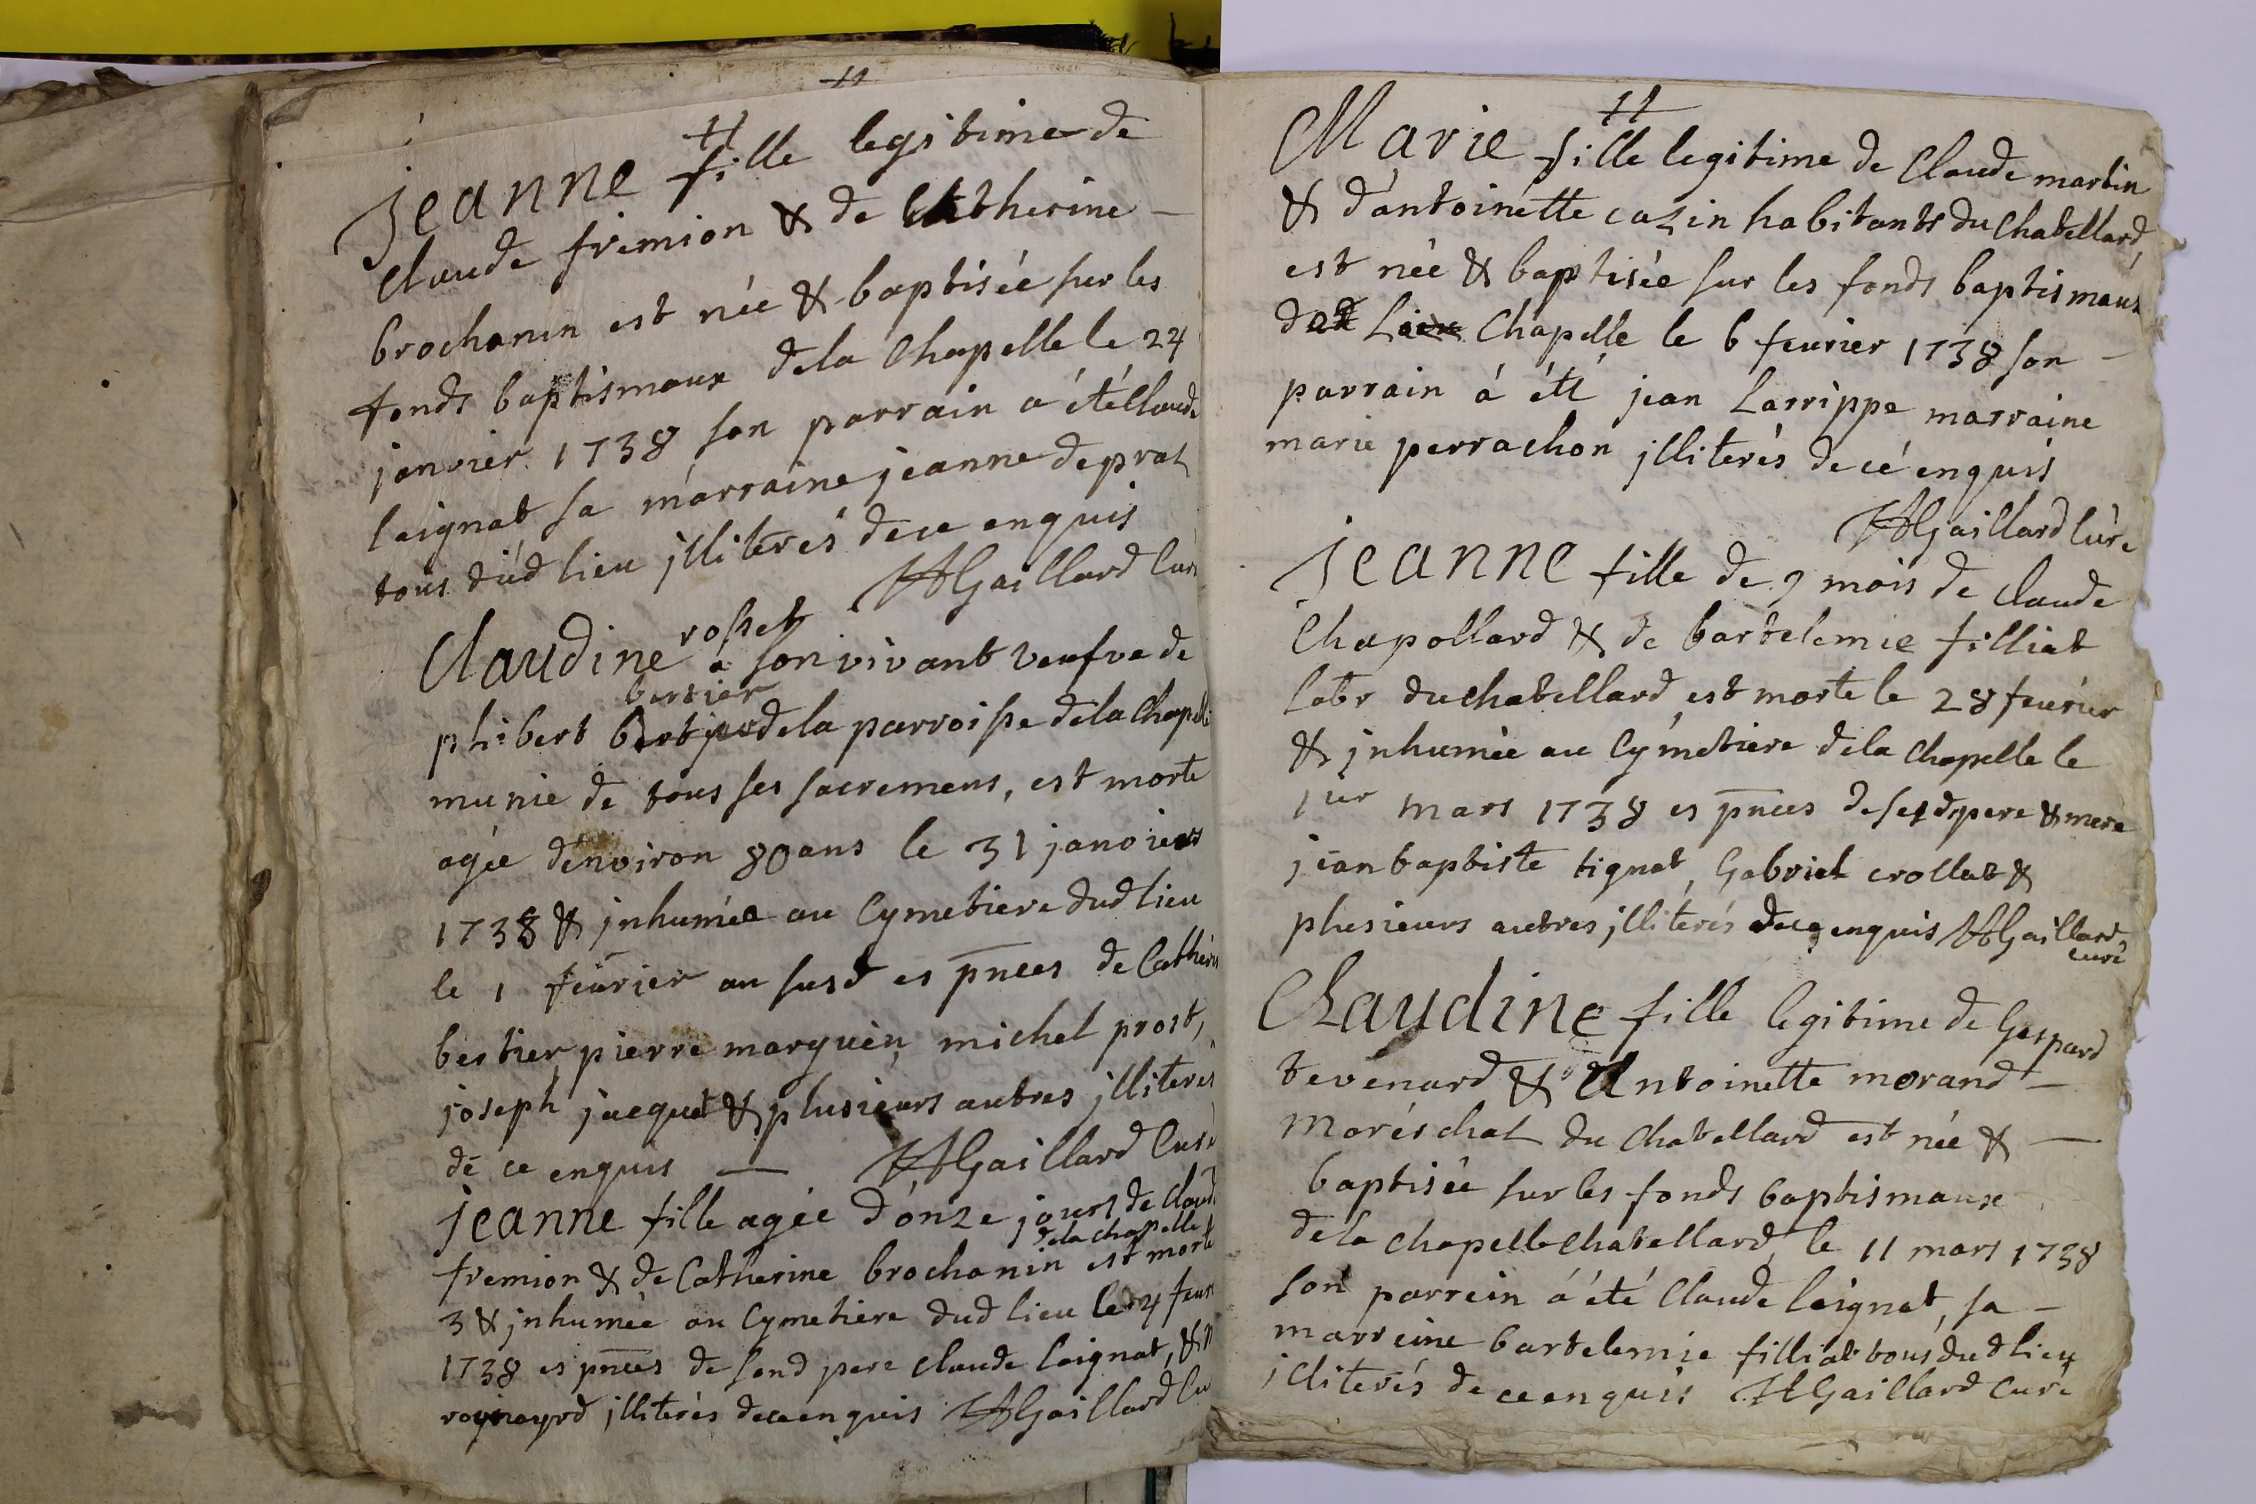 jeanne fille legitime de
Claude fremion & de Catherine
brochanin est née & baptisée sur les
fonds baptismaux de la Chapelle le 24
janvier 1738 son parrain a été Claude
loignat sa marraine jeanne deprat
tous dud lieu jlliterés de ce enquis
HGaillard Curé
Claudine rosset a son vivant veufve de
phibert bertier de la parroisse de la Chapelle
munie de tous ses sacremens, est morte
agée d'environ 80 ans le 31 janvier
1738 & jnhumée au Cymetiere dud lieu
le 1 feurier an susd es pnces de Catherine
bertier, pierre marguin, michel prost,
joseph jacquet & plusieurs autres jlliterés
de ce enquis HGaillard Curé
jeanne fille agée d'onze jours de Claude
fremion & de Catherine brochanin de la chapelle est morte
3 & jnhumée au Cymetiere dud lieu le 4 feur
1738 es pnces de sond pere Claude loignat, &
jlliterés de ce enquis HGaillard Cu
Marie fille legitime de Claude martin
& d'antoinette cazin habitants du Chatellard
est née & baptisée sur les fonds baptismaux
Chapelle le 6 feurier 1738 son
parrain á été jean Larrippe marraine
marie perrachon jlliterés de cé enquis
HGaillard Curé
jeanne fille de 9 mois de Claude
Chapollard & de bartelemie filliat
labr du chatellard est morte le 28 feurier
& jnhumée au Cymetiere de la Chapelle le
1er mars 1738 es pnces de sesd pere & mere
jean baptiste tignat, Gabriel crollet &
plusieurs autres jlliterés de ce enquis HGaillard
curé
Claudine fille legitime de Gaspard
tevenard & d'Antoinette morand
maréschal du Chatellard est née &
baptisée sur les fonds baptismaux
de la chapelle chatellard, le 11 mars 1738
son parrein á été Claude loignat, sa
marreine bartelemie filliat tous dud lieu
illiterés de ce enquis HGaillard Curé